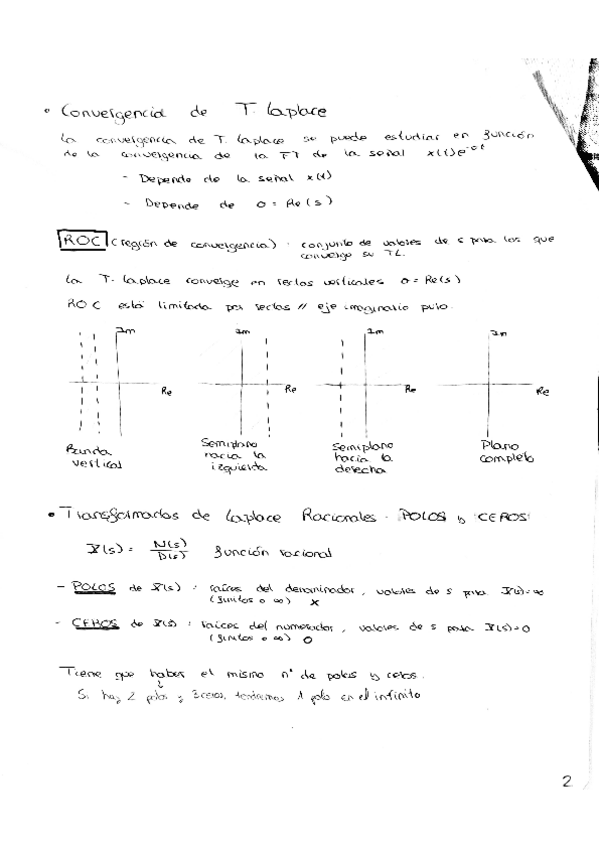 • Convergencia de T. Laplace
La convergencia de T. Laplace se puede estudiar en función
de la convergencia de la FT de la señal x(t)e^-σt
- Depende de la señal x(t)
- Depende de σ = Re(s)
ROC (región de convergencia) : conjunto de valores de s para los que
converge su TL.
La T. Laplace converge en rectas verticales σ = Re(s)
ROC está limitada por rectas // eje imaginario puro.
Im Im Im Im
Re Re Re Re
Banda
vertical
Semiplano
hacia la
izquierda
Semiplano
hacia la
derecha
Plano
completo
• Transformadas de Laplace Racionales. POLOS y CEROS
X(s) = N(s)/D(s) función racional
- POLOS de X(s) : raíces del denominador, valores de s para X(s)=∞
(finitos o ∞) x
- CEROS de X(s) : raíces del numerador, valores de s para X(s)=0
(finitos o ∞) o
Tiene que haber el mismo nº de polos y ceros.
Si hay 2 polos y 3 ceros, tendremos 1 polo en el infinito
2